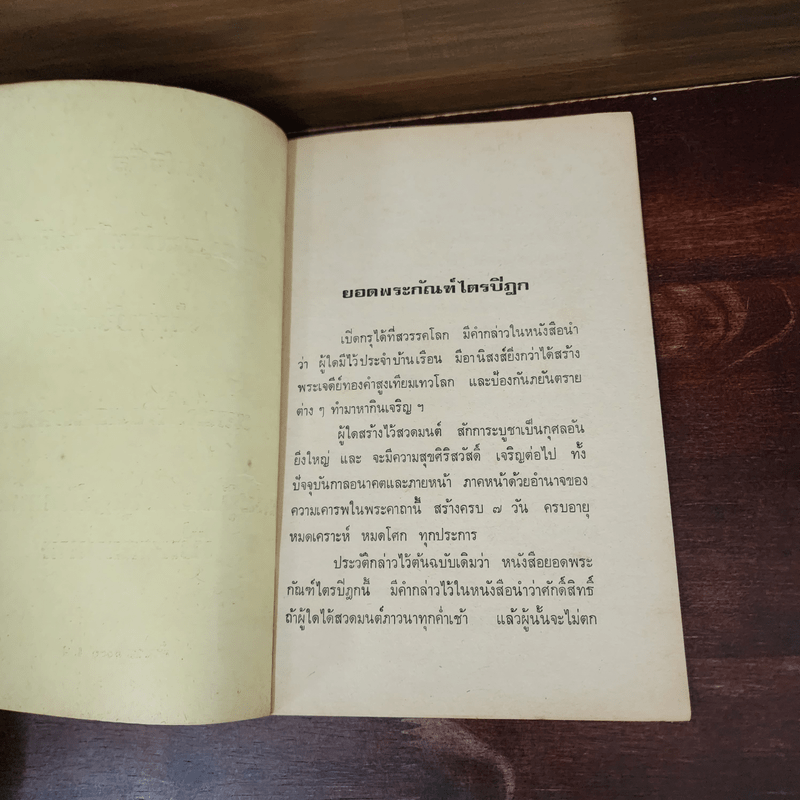 ยอดพระกัณฑ์ไตรปิฎก
เปิดกรุได้ที่สวรรคโลก มีคำกล่าวในหนังสือนำ
ว่า ผู้ใดมีไว้ประจำบ้านเรือน มีอานิสงส์ยิ่งกว่าได้สร้าง
พระเจดีย์ทองคำสูงเทียมเทวโลก และป้องกันภยันตราย
ต่าง ๆ ทำมาหากินเจริญ ฯ
ผู้ใดสร้างไว้สวดมนต์ สักการะบูชาเป็นกุศลอัน
ยิ่งใหญ่ และ จะมีความสุขศิริสวัสดิ์ เจริญต่อไป ทั้ง
ปัจจุบันกาลอนาคตและภายหน้า ภาคหน้าด้วยอำนาจของ
ความเคารพในพระคาถานี้ สร้างครบ ๗ วัน ครบอายุ
หมดเคราะห์ หมดโศก ทุกประการ
ประวัติกล่าวไว้ต้นฉบับเดิมว่า หนังสือยอดพระ
กัณฑ์ไตรปิฎกนี้ มีคำกล่าวไว้ในหนังสือนำว่าศักดิ์สิทธิ์
ถ้าผู้ใดได้สวดมนต์ภาวนาทุกค่ำเช้า แล้วผู้นั้นจะไม่ตก